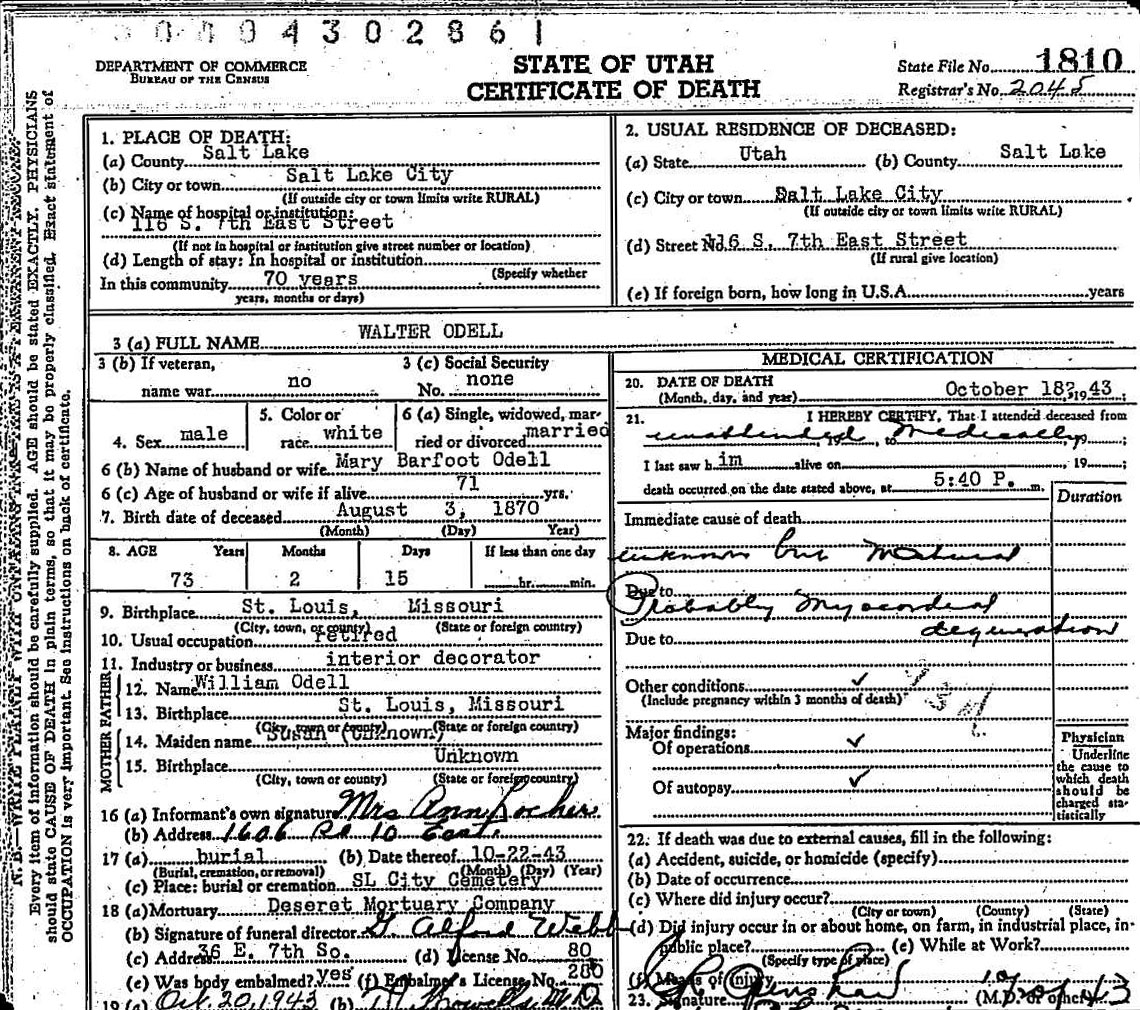 3 0 4 9 4 3 0 2 8 6 1
DEPARTMENT OF COMMERCE
BUREAU OF THE CENSUS
STATE OF UTAH
CERTIFICATE OF DEATH
State File No. 1810
Registrar's No. 2045
N. B.—WRITE PLAINLY WITH UNFADING
Every item of information should be carefully supplied. AGE should be stated EXACTLY. PHYSICIANS
should state CAUSE OF DEATH in plain terms, so that it may be properly classified. Exact statement of
OCCUPATION is very important. See instructions on back of certificate.
1. PLACE OF DEATH:
(a) County Salt Lake
(b) City or town Salt Lake City
(If outside city or town limits write RURAL)
(c) Name of hospital or institution:
116 S. 7th East Street
(If not in hospital or institution give street number or location)
(d) Length of stay: In hospital or institution
(Specify whether
In this community 70 years
years, months or days)
2. USUAL RESIDENCE OF DECEASED:
(a) State Utah (b) County Salt Lake
(c) City or town Salt Lake City
(If outside city or town limits write RURAL)
(d) Street No. 116 S. 7th East Street
(If rural give location)
(e) If foreign born, how long in U.S.A. years
3 (a) FULL NAME WALTER ODELL
3 (b) If veteran, 3 (c) Social Security
name war no No. none
4. Sex male
5. Color or
race white
6 (a) Single, widowed, mar-
ried or divorced married
6 (b) Name of husband or wife Mary Barfoot Odell
6 (c) Age of husband or wife if alive 71 yrs.
7. Birth date of deceased August 3, 1870
(Month) (Day) Year)
8. AGE Years Months Days If less than one day
73 2 15 hr. min.
9. Birthplace St. Louis, Missouri
(City, town, or county) (State or foreign country)
10. Usual occupation retired
11. Industry or business interior decorator
FATHER
12. Name William Odell
13. Birthplace St. Louis, Missouri
(City, town or county) (State or foreign country)
MOTHER
14. Maiden name Susan (Unknown)
15. Birthplace Unknown
(City, town or county) (State or foreign country)
16 (a) Informant's own signature Mrs Ann Locher
(b) Address 1606 So 10 East.
17 (a) burial (b) Date thereof 10-22-43
(Burial, cremation, or removal) (Month) (Day) (Year)
(c) Place: burial or cremation SL City Cemetery
18 (a) Mortuary Deseret Mortuary Company
(b) Signature of funeral director G. Alford Webb
(c) Address 36 E. 7th So. (d) License No. 80
(e) Was body embalmed? yes (f) Embalmer's License No. 280
19 (a) Oct. 20, 1943 (b) M.D.
MEDICAL CERTIFICATION
20. DATE OF DEATH
(Month, day, and year) October 18, 1943;
21. I HEREBY CERTIFY, That I attended deceased from
unattended, to Medically, 19 ;
I last saw him alive on , 19 ;
death occurred on the date stated above, at 5:40 P. m.
Duration
Immediate cause of death
unknown but Natural
Due to
Probably Myocardial
Due to degeneration
Other conditions ✓
(Include pregnancy within 3 months of death)
Major findings:
Of operations ✓
Of autopsy ✓
Physician
Underline
the cause to
which death
should be
charged sta-
tistically
22. If death was due to external causes, fill in the following:
(a) Accident, suicide, or homicide (specify)
(b) Date of occurrence
(c) Where did injury occur?
(City or town) (County) (State)
(d) Did injury occur in or about home, on farm, in industrial place, in
public place? (e) While at Work?
(Specify type of place)
(f) Means of injury
23. Signature (M.D. or other)